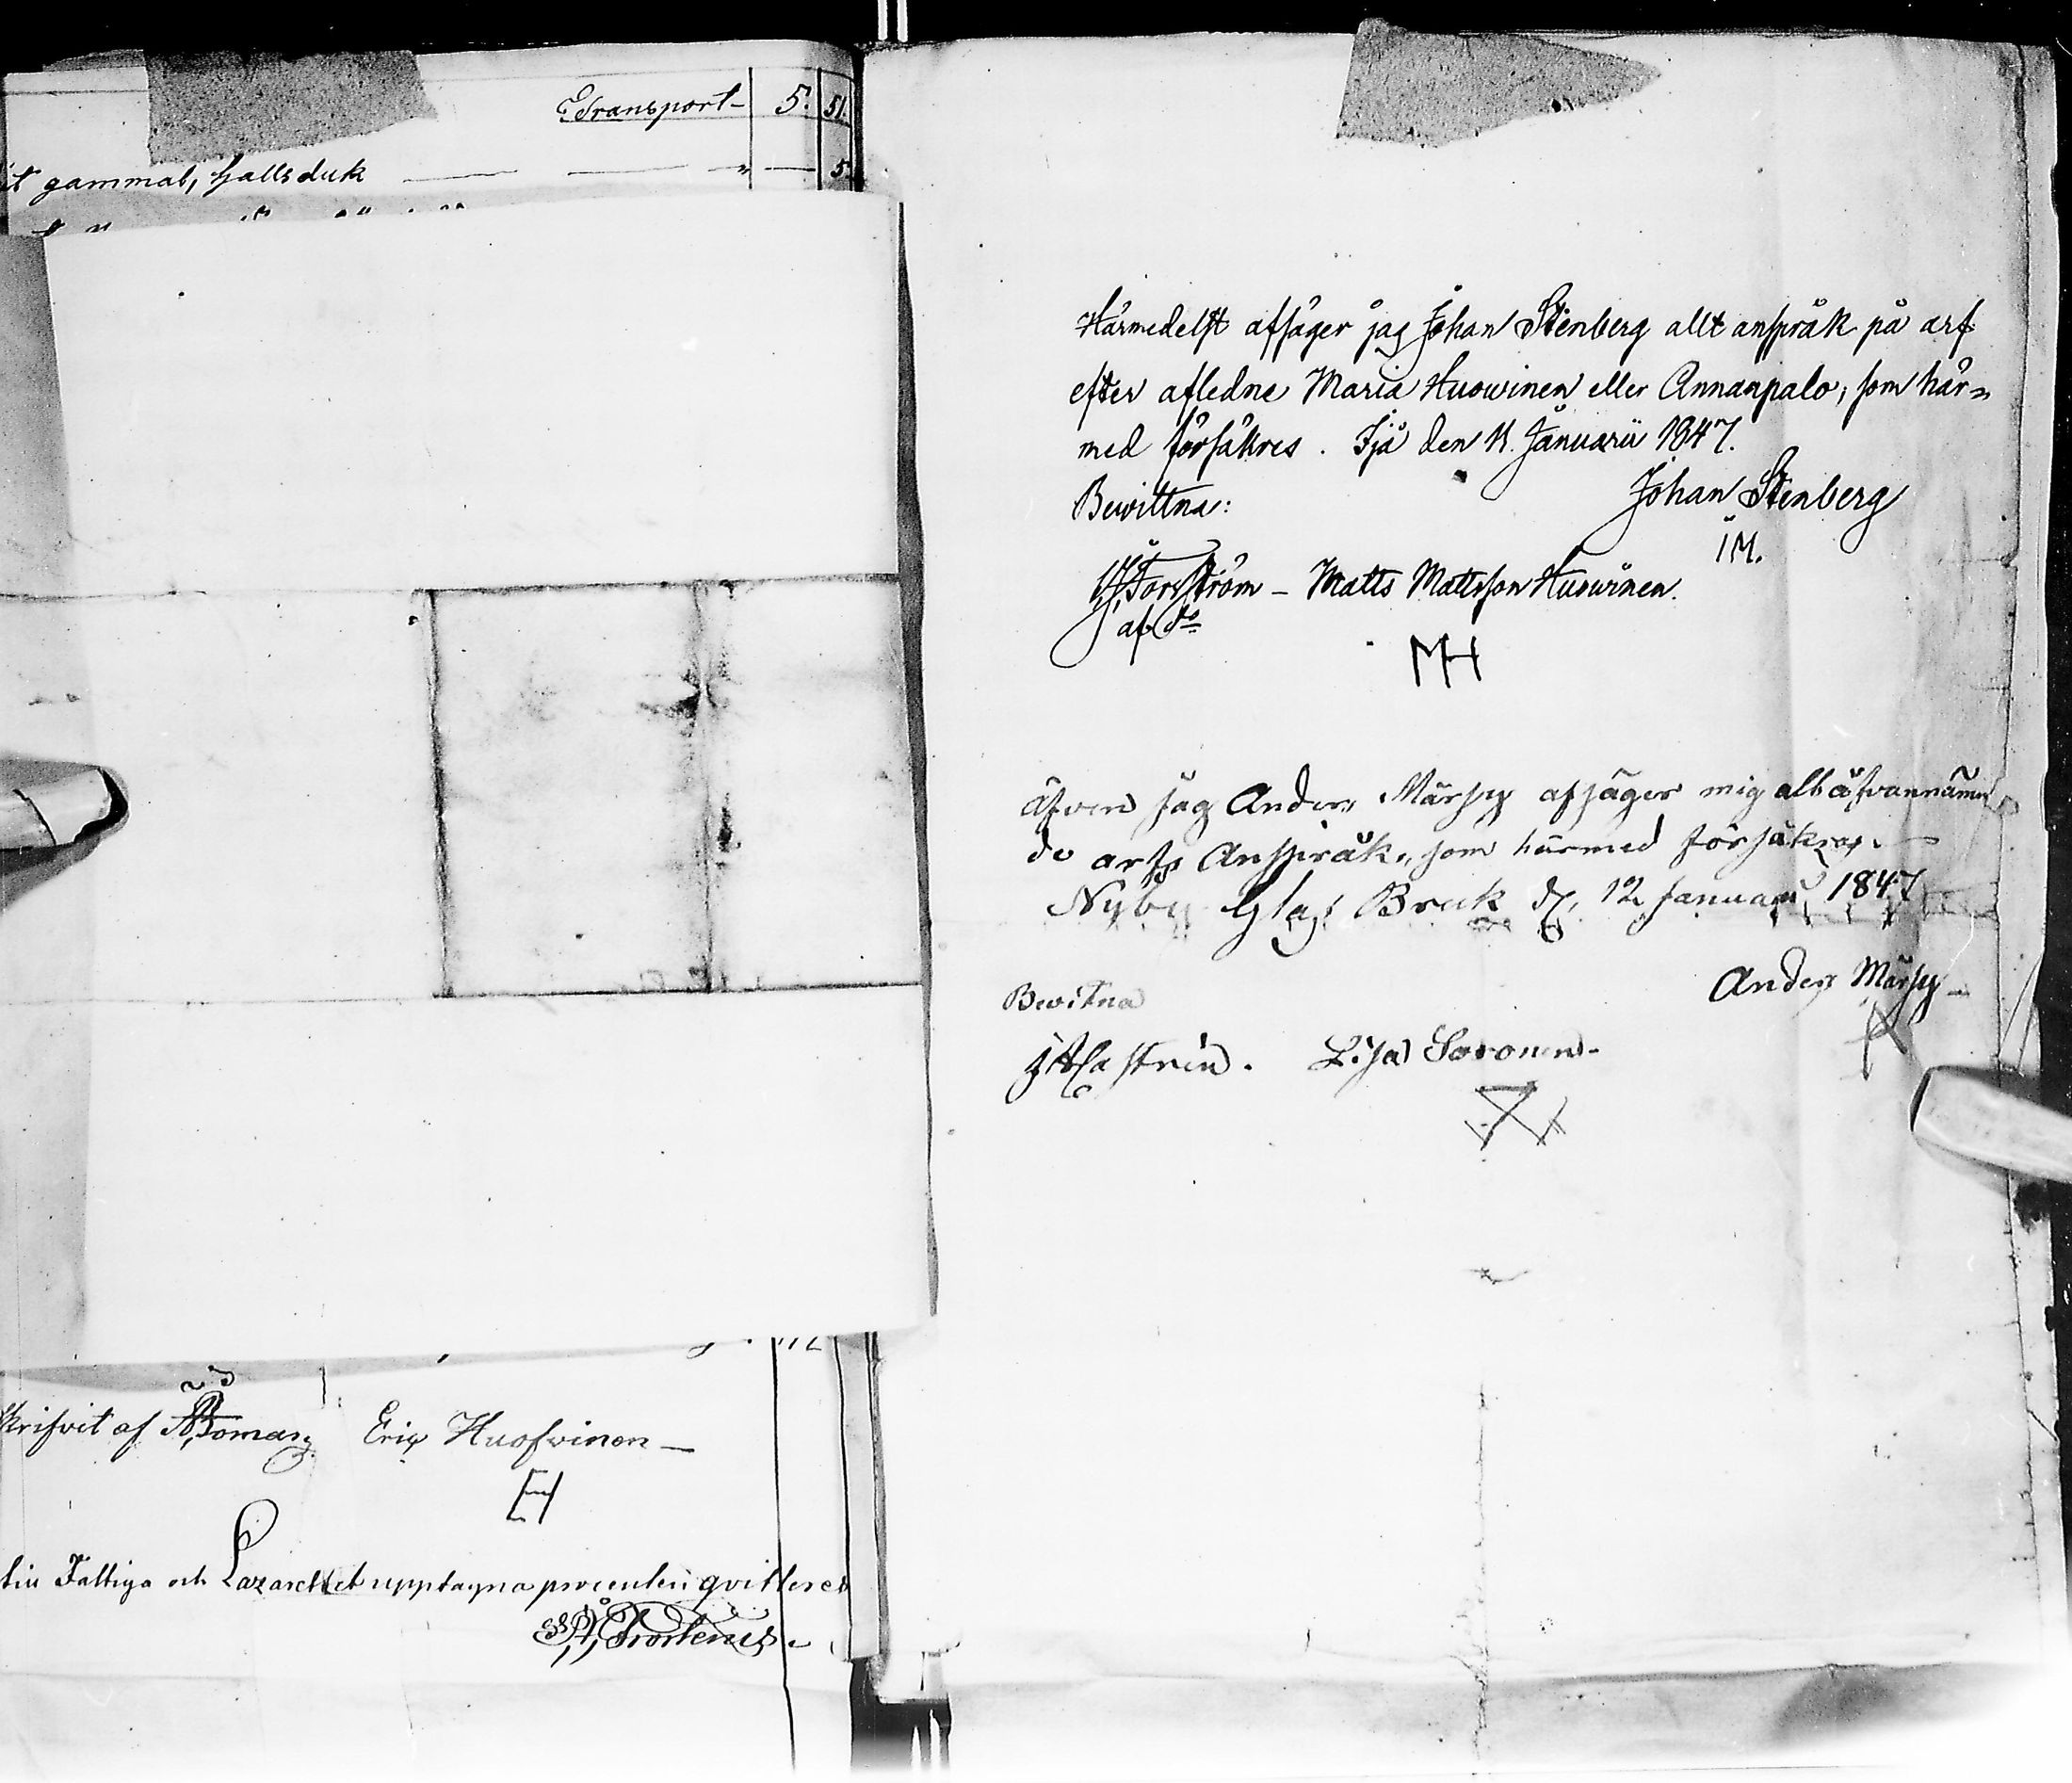 Transport 5. 51.
it gammal, hallsduk — — " — 5
skrifvit af ABoman
Eric Huofvinen —
H
Fattiga och Lazarettet upptagna procenten qvitteres
Härmedelst afsäger jag Johan Stenberg allt anspråk på arf
efter afledne Maria Huowinen eller Annanpalo, som här=
med försäkres. Ijå den 11. Januarii 1847.
Bewittna: Johan Stenberg
IM.
Forsström – Matts Mattsson Huowinen.
MH
äfven jag Anders Märsy afsäger mig alt ofvannämn
de arfs Anspråk, som härmed försäkras.
Nyby Glas Bruk d. 12 Januari 1847
Bewitna Anders Märsy
Castrén. Lisa Soronen